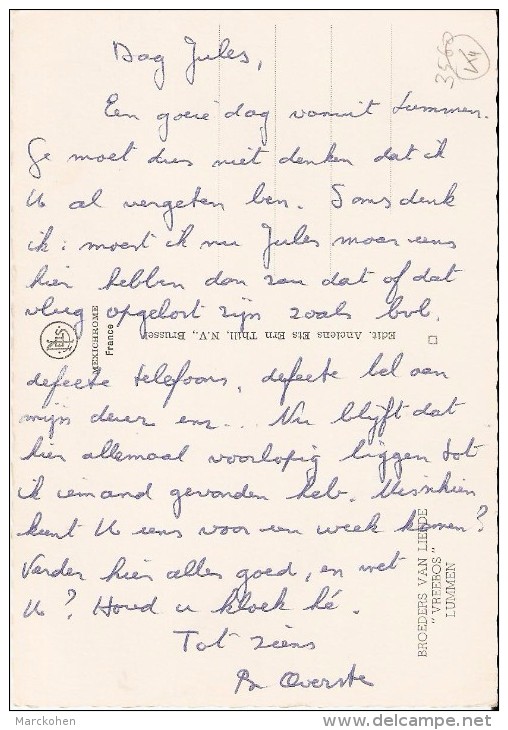 3560
Dag Jules,
Een goeie dag vanuit Lummen.
Ge moet dus niet denken dat ik
U al vergeten ben. Soms denk
ik: moest ik nu Jules maar eens
hier hebben dan zou dat of dat
vlug opgelost zijn zoals bvb.
defecte telefoons, defecte bel aan
mijn deur enz... Nu blijft dat
hier allemaal voorlopig liggen tot
ik iemand gevonden heb. Misschien
kunt U eens voor een week komen?
Verder hier alles goed, en met
U? Houd u kloek hé.
Tot ziens
Br Overste
NELS
MEXICHROME
France
Edit. Anciens Ets Ern Thill, N.V., Brussel
BROEDERS VAN LIEFDE
"VREEBOS"
LUMMEN
Marckohen
delcampe.net